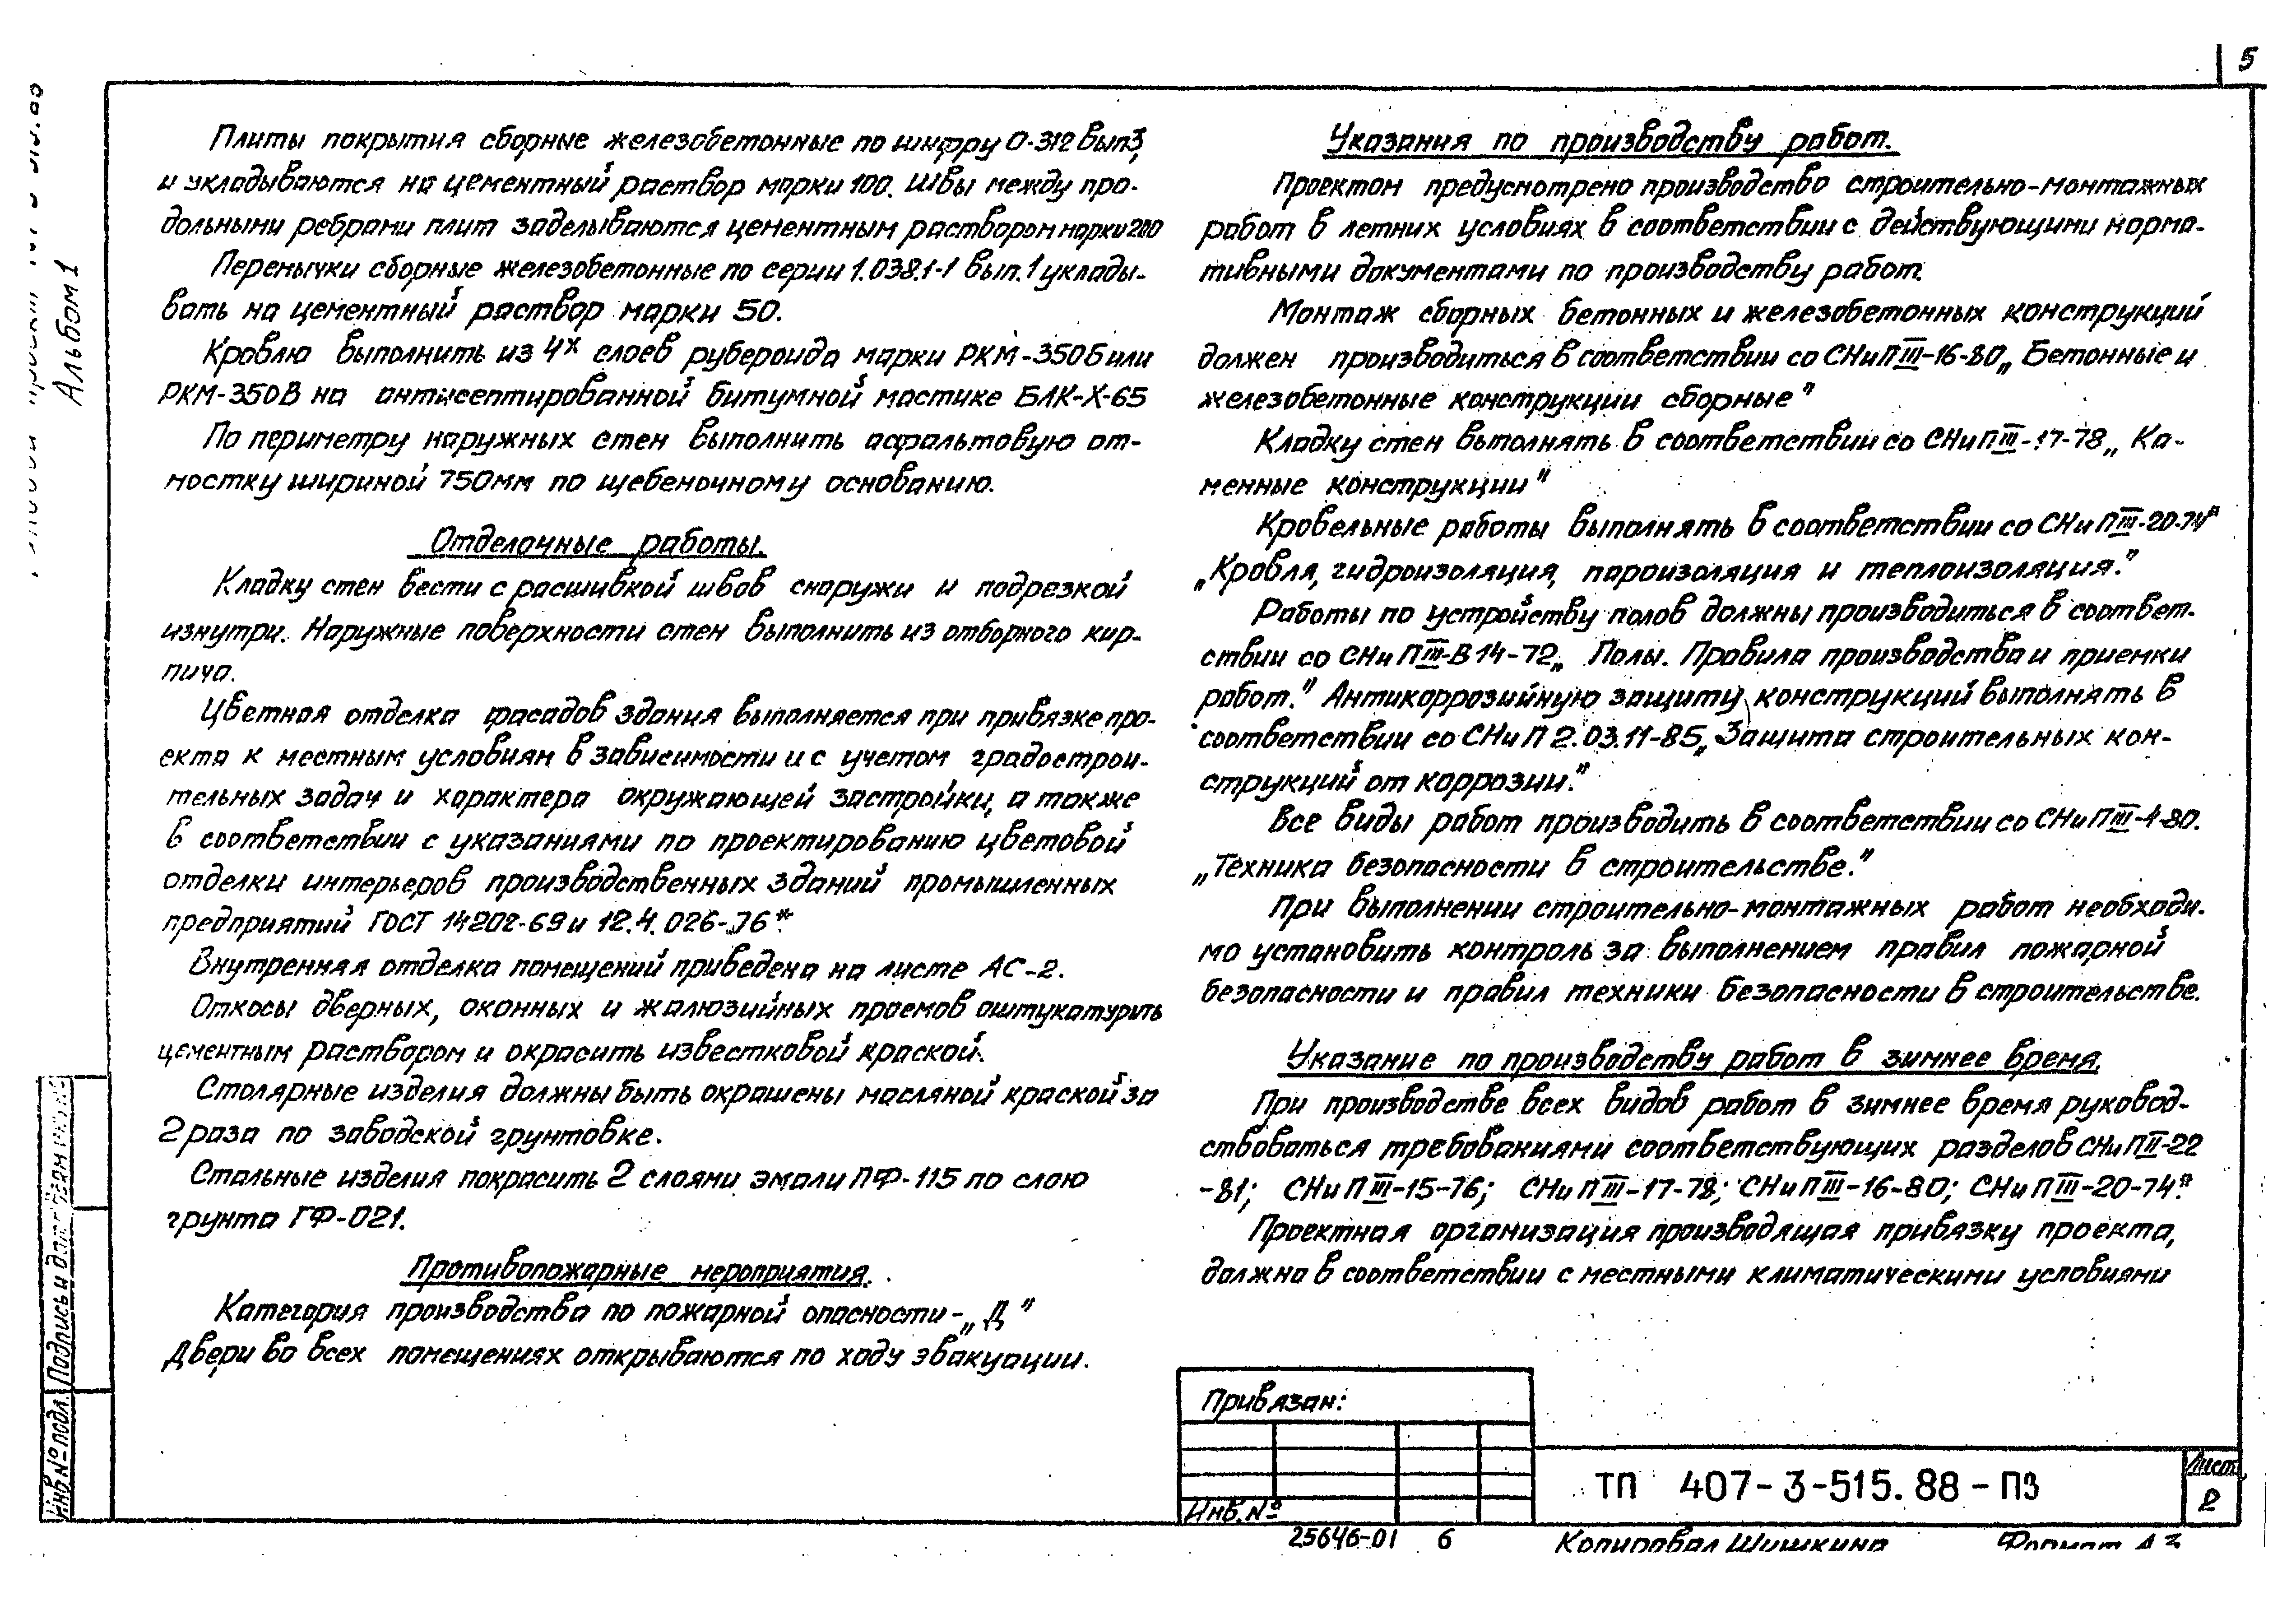 5
Альбом 1
Плиты покрытия сборные железобетонные по шифру 0-312 вып3,
и укладываются на цементный раствор марки 100. Швы между про-
дольными ребрами плит заделываются цементным раствором марки 200
Перемычки сборные железобетонные по серии 1.038.1-1 вып. 1 уклады-
вать на цементный раствор марки 50.
Кровлю выполнить из 4х слоев рубероида марки РКМ-350Б или
РКМ-350В на антисептированной битумной мастике БЛК-Х-65
По периметру наружных стен выполнить асфальтовую от-
мостку шириной 750мм по щебеночному основанию.
Отделочные работы.
Кладку стен вести с расшивкой швов снаружи и подрезкой
изнутри. Наружные поверхности стен выполнить из отборного кир-
пича.
Цветная отделка фасадов здания выполняется при привязке про-
екта к местным условиям в зависимости и с учетом градострои-
тельных задач и характера окружающей застройки, а также
в соответствии с указаниями по проектированию цветовой
отделки интерьеров производственных зданий промышленных
предприятий ГОСТ 14202-69 и 12.4.026-76*.
Внутренняя отделка помещений приведена на листе АС-2.
Откосы дверных, оконных и жалюзийных проемов оштукатурить
цементным раствором и окрасить известковой краской.
Столярные изделия должны быть окрашены масляной краской за
2 раза по заводской грунтовке.
Стальные изделия покрасить 2 слоями эмали ПФ-115 по слою
грунта ГФ-021.
Противопожарные мероприятия.
Категория производства по пожарной опасности - „Д"
Двери во всех помещениях открываются по ходу эвакуации.
Указания по производству работ.
Проектом предусмотрено производство строительно-монтажных
работ в летних условиях в соответствии с действующими норма-
тивными документами по производству работ.
Монтаж сборных бетонных и железобетонных конструкций
должен производиться в соответствии со СНиП III-16-80 „Бетонные и
железобетонные конструкции сборные"
Кладку стен выполнять в соответствии со СНиП III-17-78 „Ка-
менные конструкции"
Кровельные работы выполнять в соответствии со СНиП III-20-74*
„Кровля, гидроизоляция, пароизоляция и теплоизоляция."
Работы по устройству полов должны производиться в соответ-
ствии со СНиП III-В 14-72 „Полы. Правила производства и приемки
работ." Антикоррозийную защиту конструкций выполнять в
соответствии со СНиП 2.03.11-85 „Защита строительных кон-
струкций от коррозии."
Все виды работ производить в соответствии со СНиП III-4-80.
„Техника безопасности в строительстве."
При выполнении строительно-монтажных работ необходи-
мо установить контроль за выполнением правил пожарной
безопасности и правил техники безопасности в строительстве.
Указание по производству работ в зимнее время.
При производстве всех видов работ в зимнее время руковод-
ствоваться требованиями соответствующих разделов СНиП II-22
-81; СНиП III-15-76; СНиП III-17-78; СНиП III-16-80; СНиП III-20-74*.
Проектная организация производящая привязку проекта,
должна в соответствии с местными климатическими условиями
Привязан:
Инв. №
ТП 407-3-515.88-ПЗ
Лист
2
25646-01 6
Копировал Шишкина
Формат А3
Инв № подл.
Подпись и дата